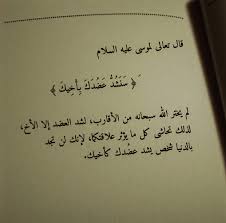 قال تعالى لموسى عليه السلام
﴿ سَنَشُدُّ عَضُدَكَ بِأَخِيكَ ﴾
لم يختر الله سبحانه من الأقارب، لشد العضد إلا الأخ،
لذلك تحاشى كل ما يؤثر علاقتكما، لإنك لن تجد
بالدنيا شخص يشد عضدك كأخيك.